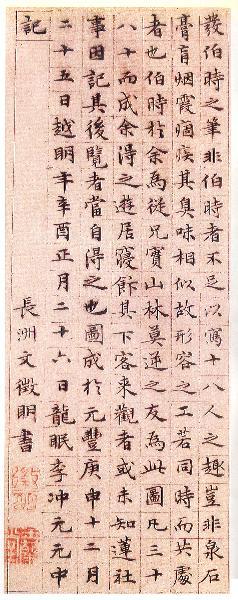 發伯時之筆非伯時者不足以寫十八人之趣豈非泉石
膏肓烟霞痼疾其臭味相似故形容之工若同時而共處
者也伯時於余為從兄實山林莫逆之友為此圖凡三十
八十而成余得之遊居寢飭其下客來觀者或未知蓮社
事因記其後覽者當自得之也圖成於元豐庚申十二月
二十五日越明年辛酉正月二十六日龍眠李冲元元中
記
長洲文徵明書